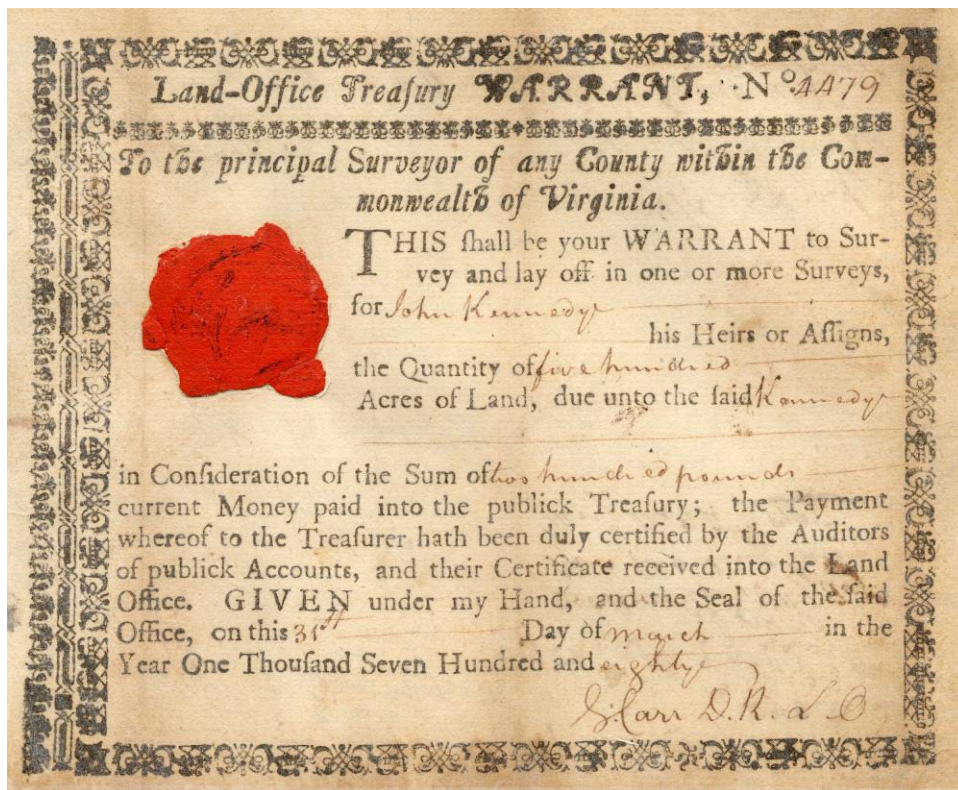 Land-Office Treaſury WARRANT, No. 4479
To the principal Surveyor of any County within the Com-
monwealth of Virginia.
THIS ſhall be your WARRANT to Sur-
vey and lay off in one or more Surveys,
for John Kennedy
his Heirs or Aſſigns,
the Quantity of five hundred
Acres of Land, due unto the ſaid Kennedy
in Conſideration of the Sum of two hundred pounds
current Money paid into the publick Treaſury; the Payment
whereof to the Treaſurer hath been duly certified by the Auditors
of publick Accounts, and their Certificate received into the Land
Office. GIVEN under my Hand, and the Seal of the ſaid
Office, on this 31st Day of march in the
Year One Thouſand Seven Hundred and eighty
Carr D. R. L O